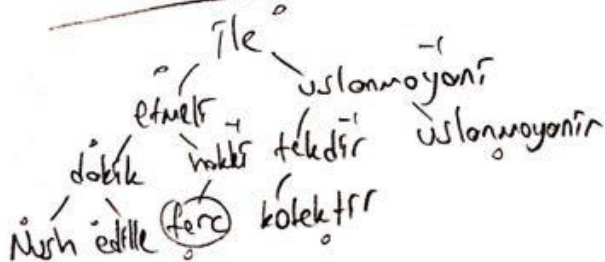 0
ile
-1
etmeli uslanmayanı
0
-1 -1
dakik hakkı tekdir uslanmayanın
0 0
Nush edille ferc kötektir
0 0